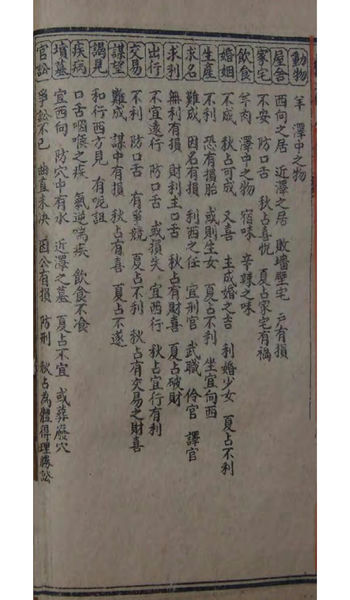 動物 羊 澤中之物
屋舍 西向之居 近澤之居 敗墻壁宅 戶有損
家宅 不安 防口舌 秋占喜悅 夏占家宅有禍
飲食 羊肉 澤中之物 宿味 辛辣之味
婚姻 不成 秋占可成 又喜 主成婚之吉 利婚少女 夏占不利
生產 不利 恐有損胎 或則生女 夏占不利 坐宜向西
求名 難成 因名有損 利西之任 宜刑官 武職 伶官 譯官
求利 無利有損 財利主口舌 秋占有財喜 夏占破財
出行 不宜遠行 防口舌 或損失 宜西行 秋占宜行有利
交易 不利 防口舌 有爭競 夏占不利 秋占有交易之財喜
謀望 難成 謀中有損 秋占有喜 夏占不遂
謁見 和行西方見 有呪詛
疾病 口舌咽喉之疾 氣逆喘疾 飲食不飡
墳墓 宜西向 防穴中有水 近澤之墓 夏占不宜 或葬廢穴
官訟 爭訟不已 曲直未決 因公有損 防刑 秋占為體得理勝訟